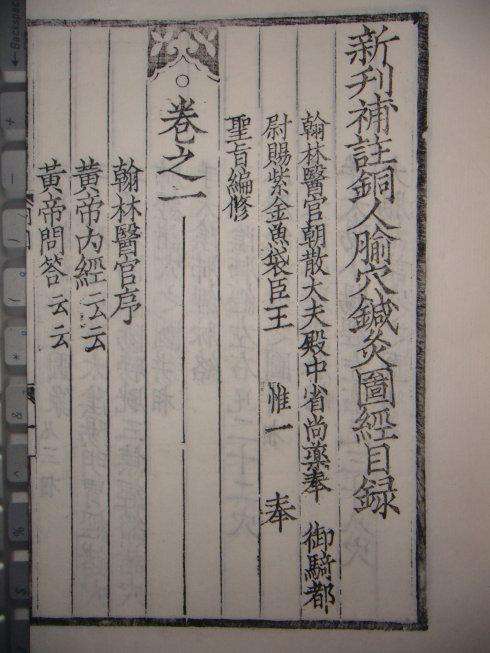 新刊補註銅人腧穴鍼灸圖經目録
翰林醫官朝散大夫殿中省尚藥奉 御騎都
尉賜紫金魚袋臣王 惟一 奉
聖旨編修
卷之一
翰林醫官序
黃帝內經云云
黃帝問答云云
Backspace